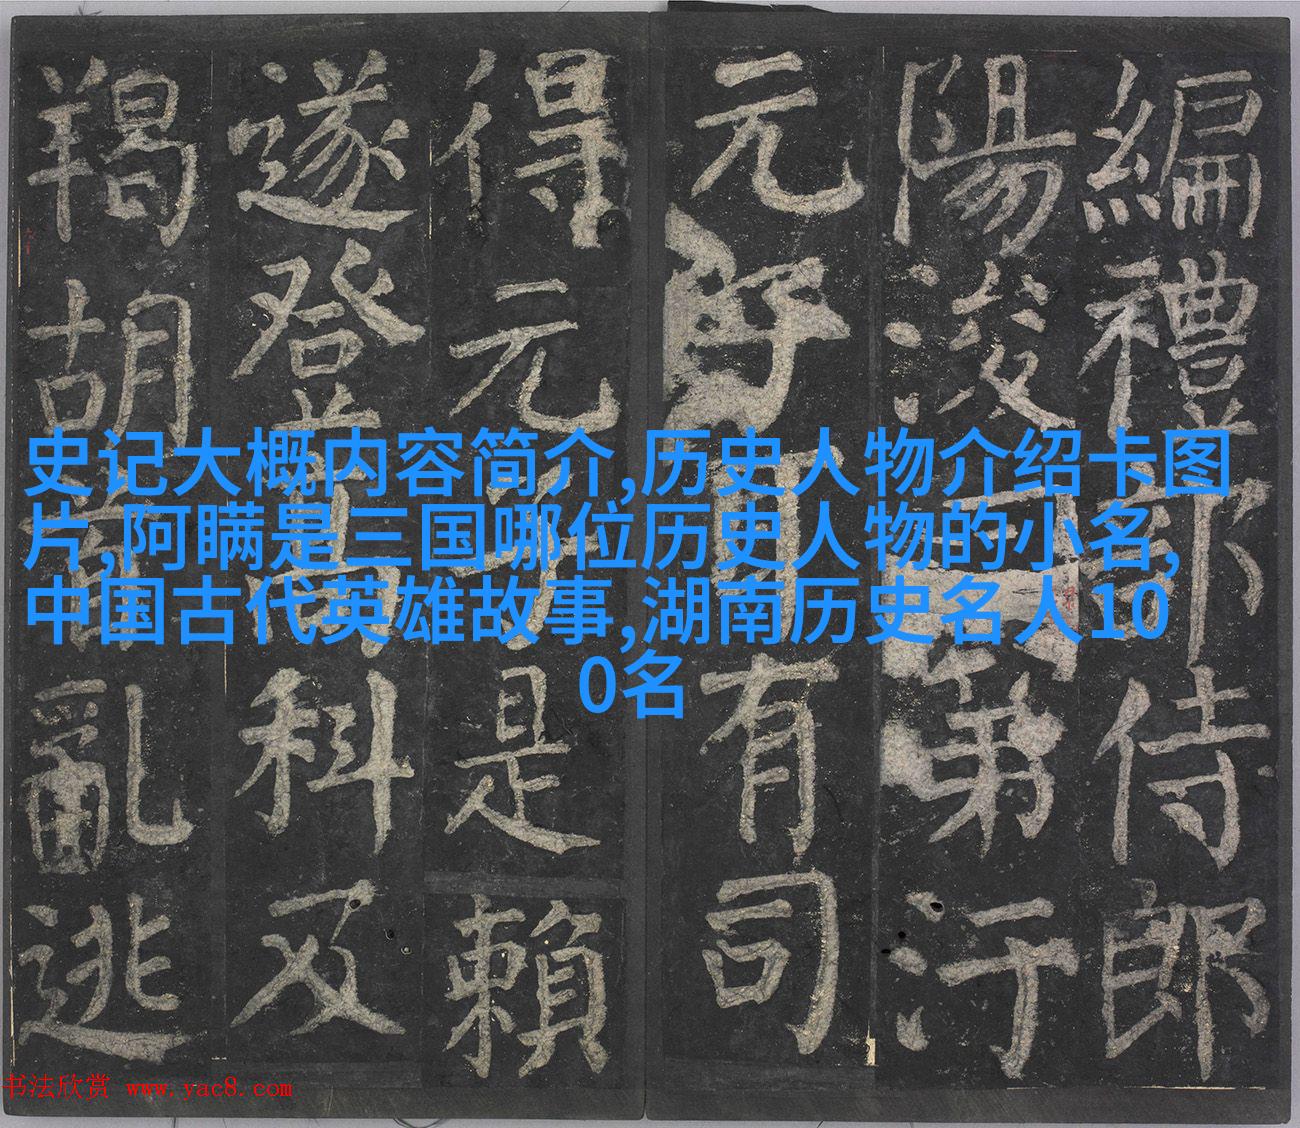 史记大概内容简介,历史人物介绍卡图
片,阿瞒是三国哪位历史人物的小名,
中国古代英雄故事,湖南历史名人10
0名
編禮部侍郎
陽浚第汙
元子有司
得元子是賴
遂登高科及
羯胡首亂逃
书法欣赏 www.yac8.com